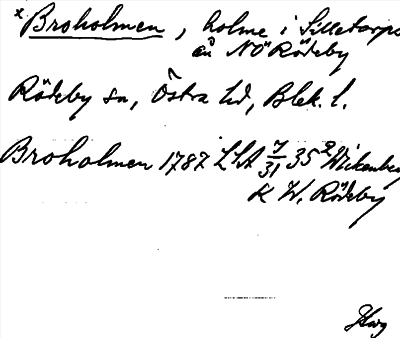 x Broholmen, holme i Silletorps
ån NÖ Rödeby
Rödeby sn, Östra hd, Blek. l.
Broholmen 1787 LSA 7/31 35 Wickenberg
K W. Rödeby